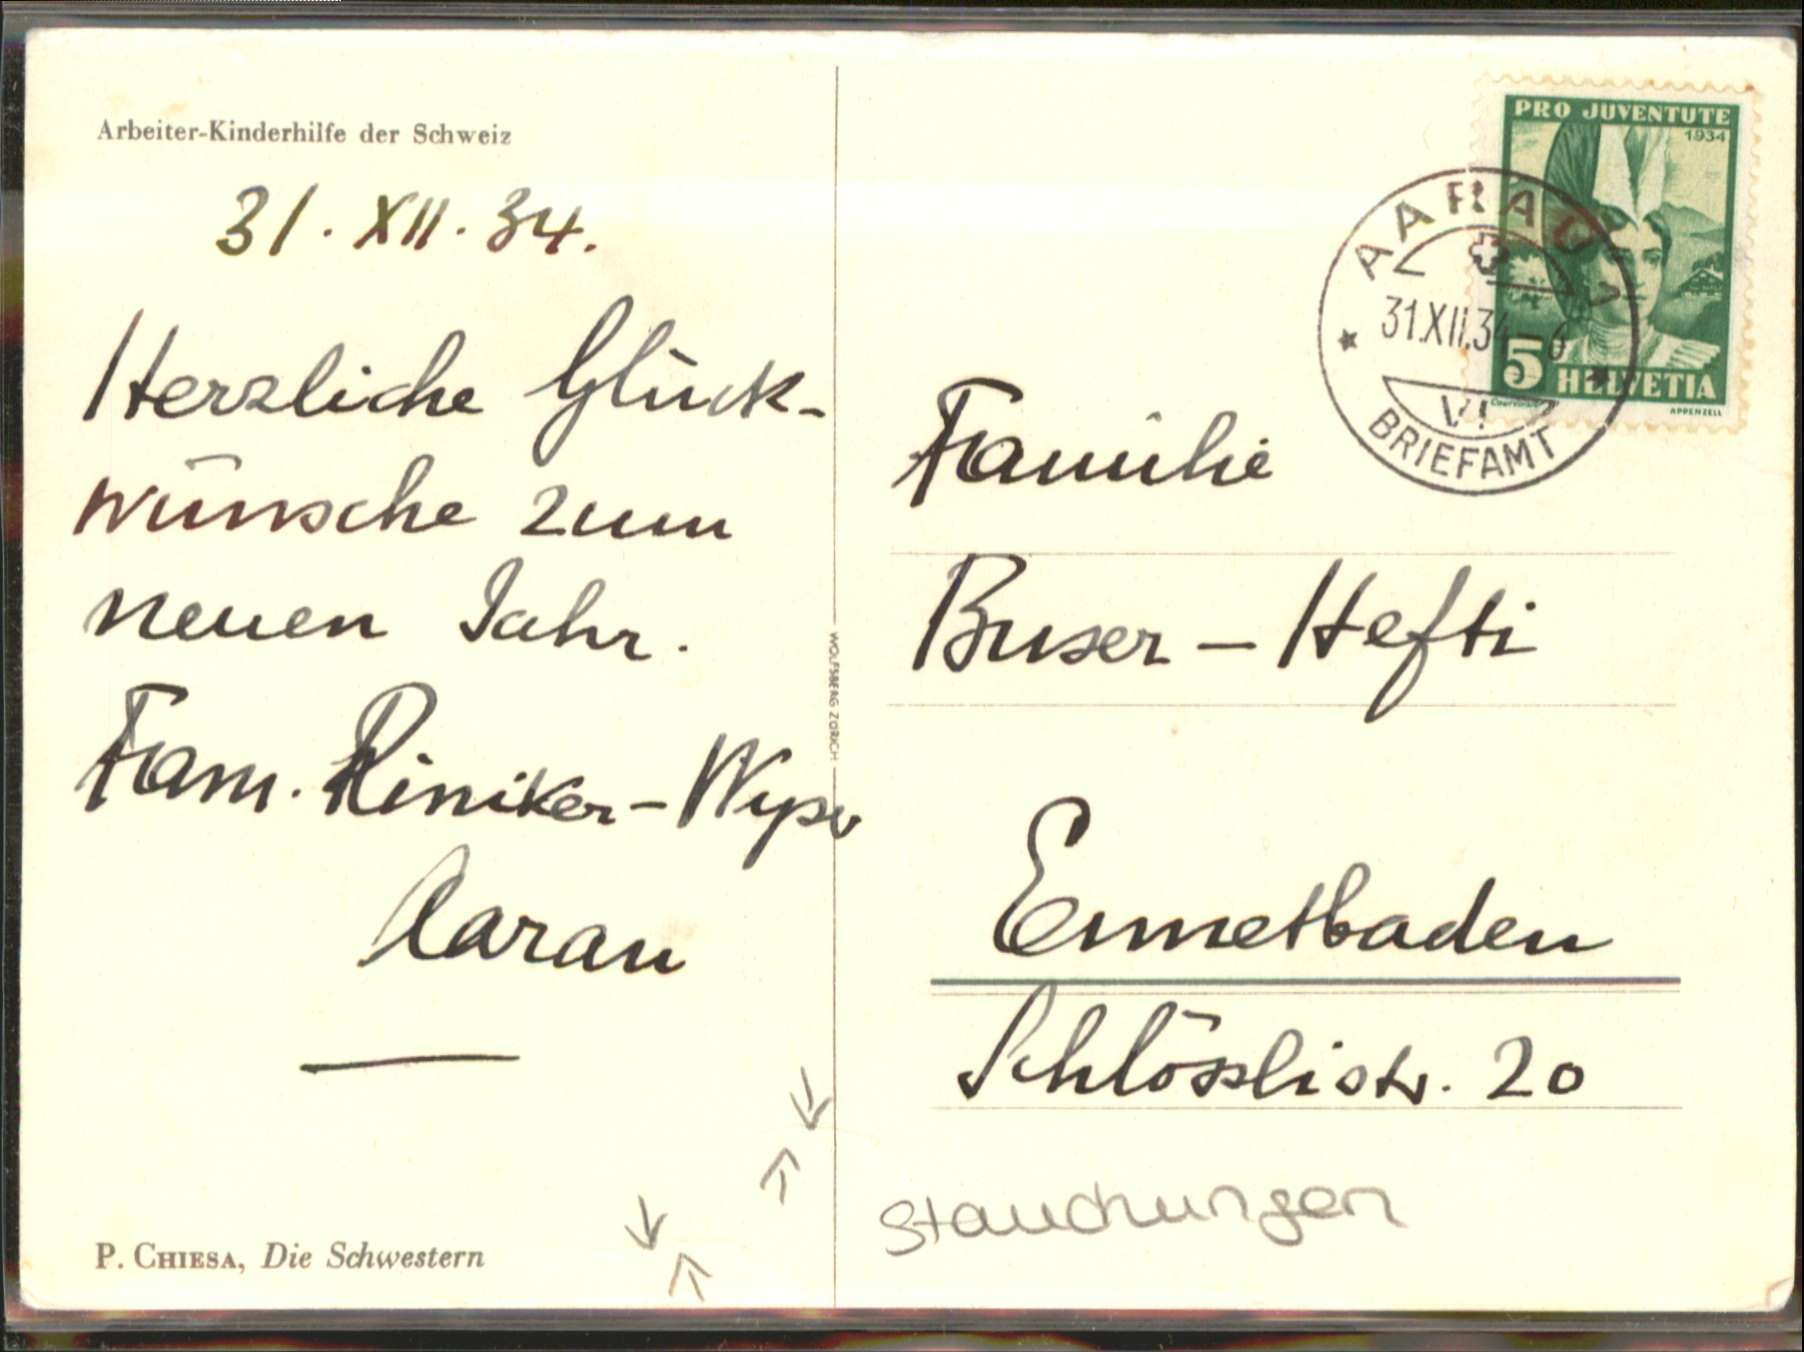 Arbeiter-Kinderhilfe der Schweiz
31. XII. 34.
Herzliche Glück-
wünsche zum
neuen Jahr.
Fam. Riniker-Wyser
Aarau
P. CHIESA, Die Schwestern
WOLFSBERG ZÜRICH
PRO JUVENTUTE
1934
5 HELVETIA
Courvoisier
APPENZELL
AARAU 1
31.XII.34-6
VI
BRIEFAMT
Familie
Buser-Hefti
Ennetbaden
Schlösslistr. 20
Stauchungen